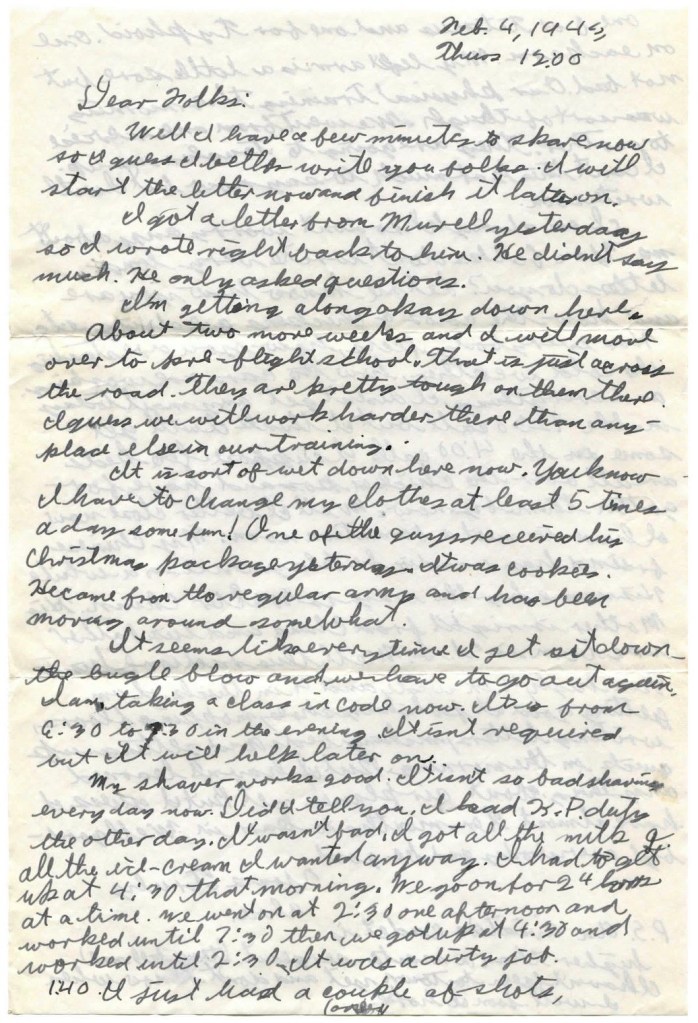 Feb. 4, 1943,
Thurs 12:00
Dear Folks:
Well I have a few minutes to spare now
so I guess I better write you folks. I will
start the letter now and finish it latter on.
I got a letter from Murell yesterday
so I wrote right back to him. He didn't say
much. He only asked questions.
I'm getting along okay down here.
About two more weeks and I will move
over to pre-flight school. That is just across
the road. They are pretty tough on them there.
I guess we will work harder there than any-
place else in our training.
It is sort of wet down here now. You know
I have to change my clothes at least 5 times
a day some fun! One of the guys received his
Christmas package yesterday. It was cookies.
He came from the regular army and has been
moving around somewhat.
It seems like every time I get sit down
the bugle blow and we have to go out again.
I am taking a class in code now. It is from
6:30 to 7:30 in the evening. It isn't required
but it will help later on.
My shaver works good. It isn't so bad shaving
every day now. Did I tell you. I had K.P. duty
the other day. It wasn't bad, I got all the milk &
all the ice-cream I wanted anyway. I had to get
up at 4:30 that morning. We go on for 24 hours
at a time. We went on at 2:30 one afternoon and
worked until 7:30 then we got up at 4:30 and
worked until 2:30. It was a dirty job.
1:40. I just had a couple of shots,
(over)